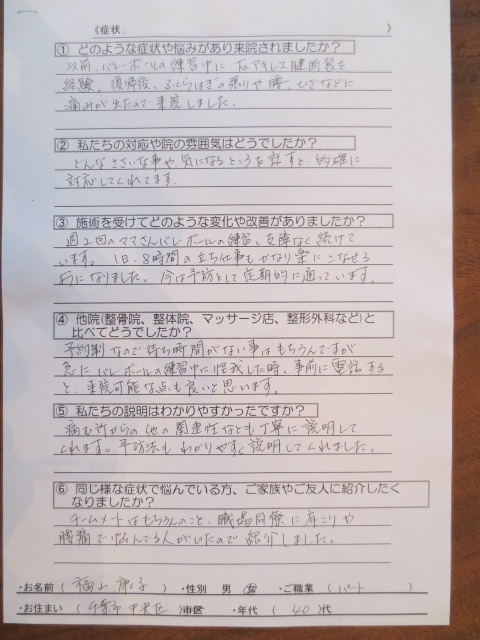 《症状: 》
① どのような症状や悩みがあり来院されましたか？
以前、バレーボールの練習中に右アキレス腱断裂を
経験。復帰後、ふくらはぎの張りや腰、ひざなどに
痛みが出たので来院しました。
② 私たちの対応や院の雰囲気はどうでしたか？
どんなささいな事や、気になるところを話すと、的確に
対応してくれてます。
③ 施術を受けてどのような変化や改善がありましたか？
週2回のママさんバレーボールの練習、支障なく続けて
います。1日、8時間の立ち仕事もかなり楽にこなせる
ようになりました。今は予防として定期的に通っています。
④ 他院(整骨院、整体院、マッサージ店、整形外科など)と
比べてどうでしたか？
予約制なので待ち時間がない事はもちろんですが
急にバレーボールの練習中に怪我した時、事前に電話する
と、来院可能な点も良いと思います。
⑤ 私たちの説明はわかりやすかったですか？
痛む所からの他の関連性なども丁寧に説明して
くれます。予防法もわかりやすく説明してくれました。
⑥ 同じ様な症状で悩んでいる方、ご家族やご友人に紹介したく
なりましたか？
チームメイトはもちろんのこと、職場同僚に肩こりや
腰痛で悩んでる人がいたので紹介しました。
・お名前 ( 福山 子 ) ・性別 男 女 ・ご職業 ( パート )
・お住まい ( 千葉市 中央区 )市区 ・年代 ( 40 )代